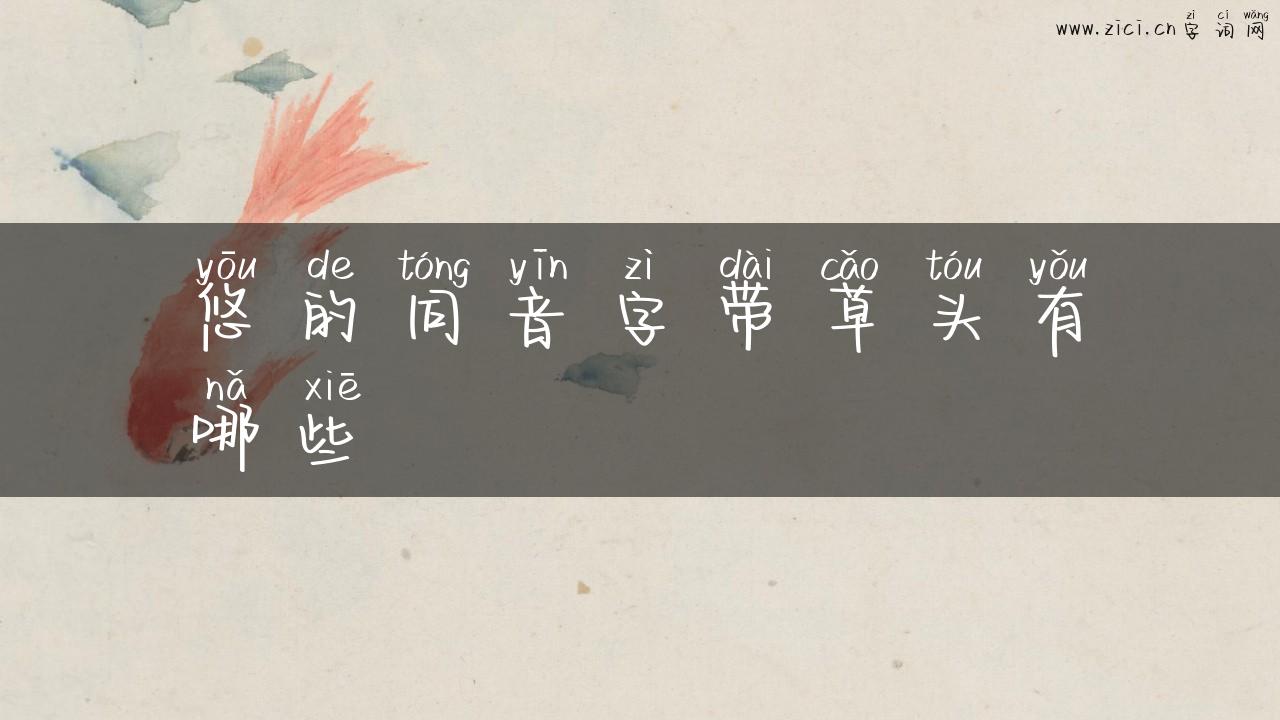 zì cí wǎng
www.zici.cn字词网
yōu de tóng yīn zì dài cǎo tóu yǒu
悠的同音字带草头有
nǎ xiē
哪些